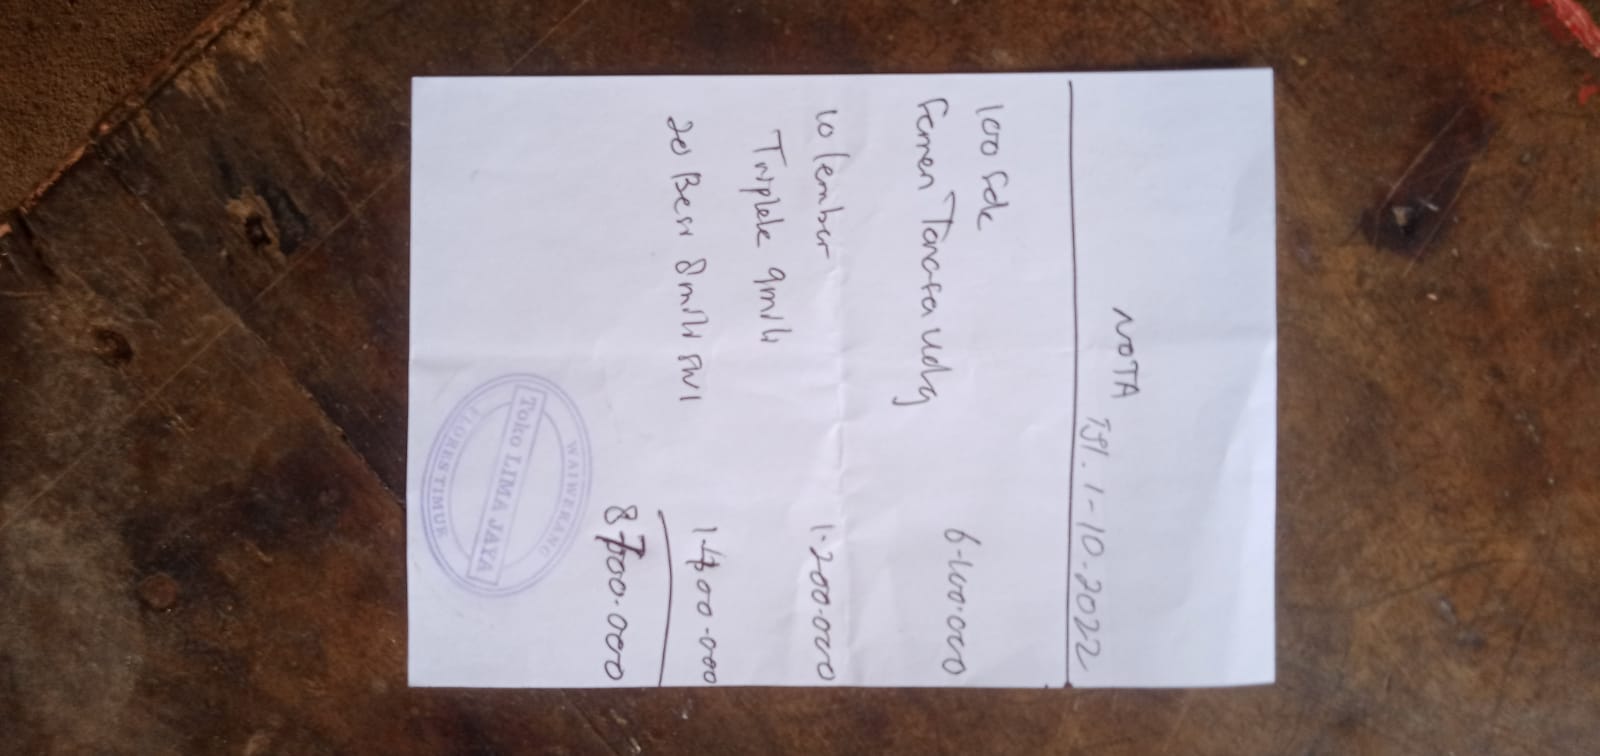 NOTA
Tgl. 1-10.2022
100 sak
Semen Tonasa udg
6.100.000
10 lember
Triplek 9mili
1.200.000
20 Besi 8 mili SNI
1.400.000
8 700.000
WAIWERANG
Toko LIMA JAYA
FLORES TIMUR